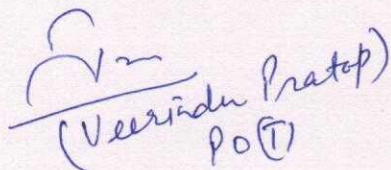 (Veerinder Pratap)
PO(T)